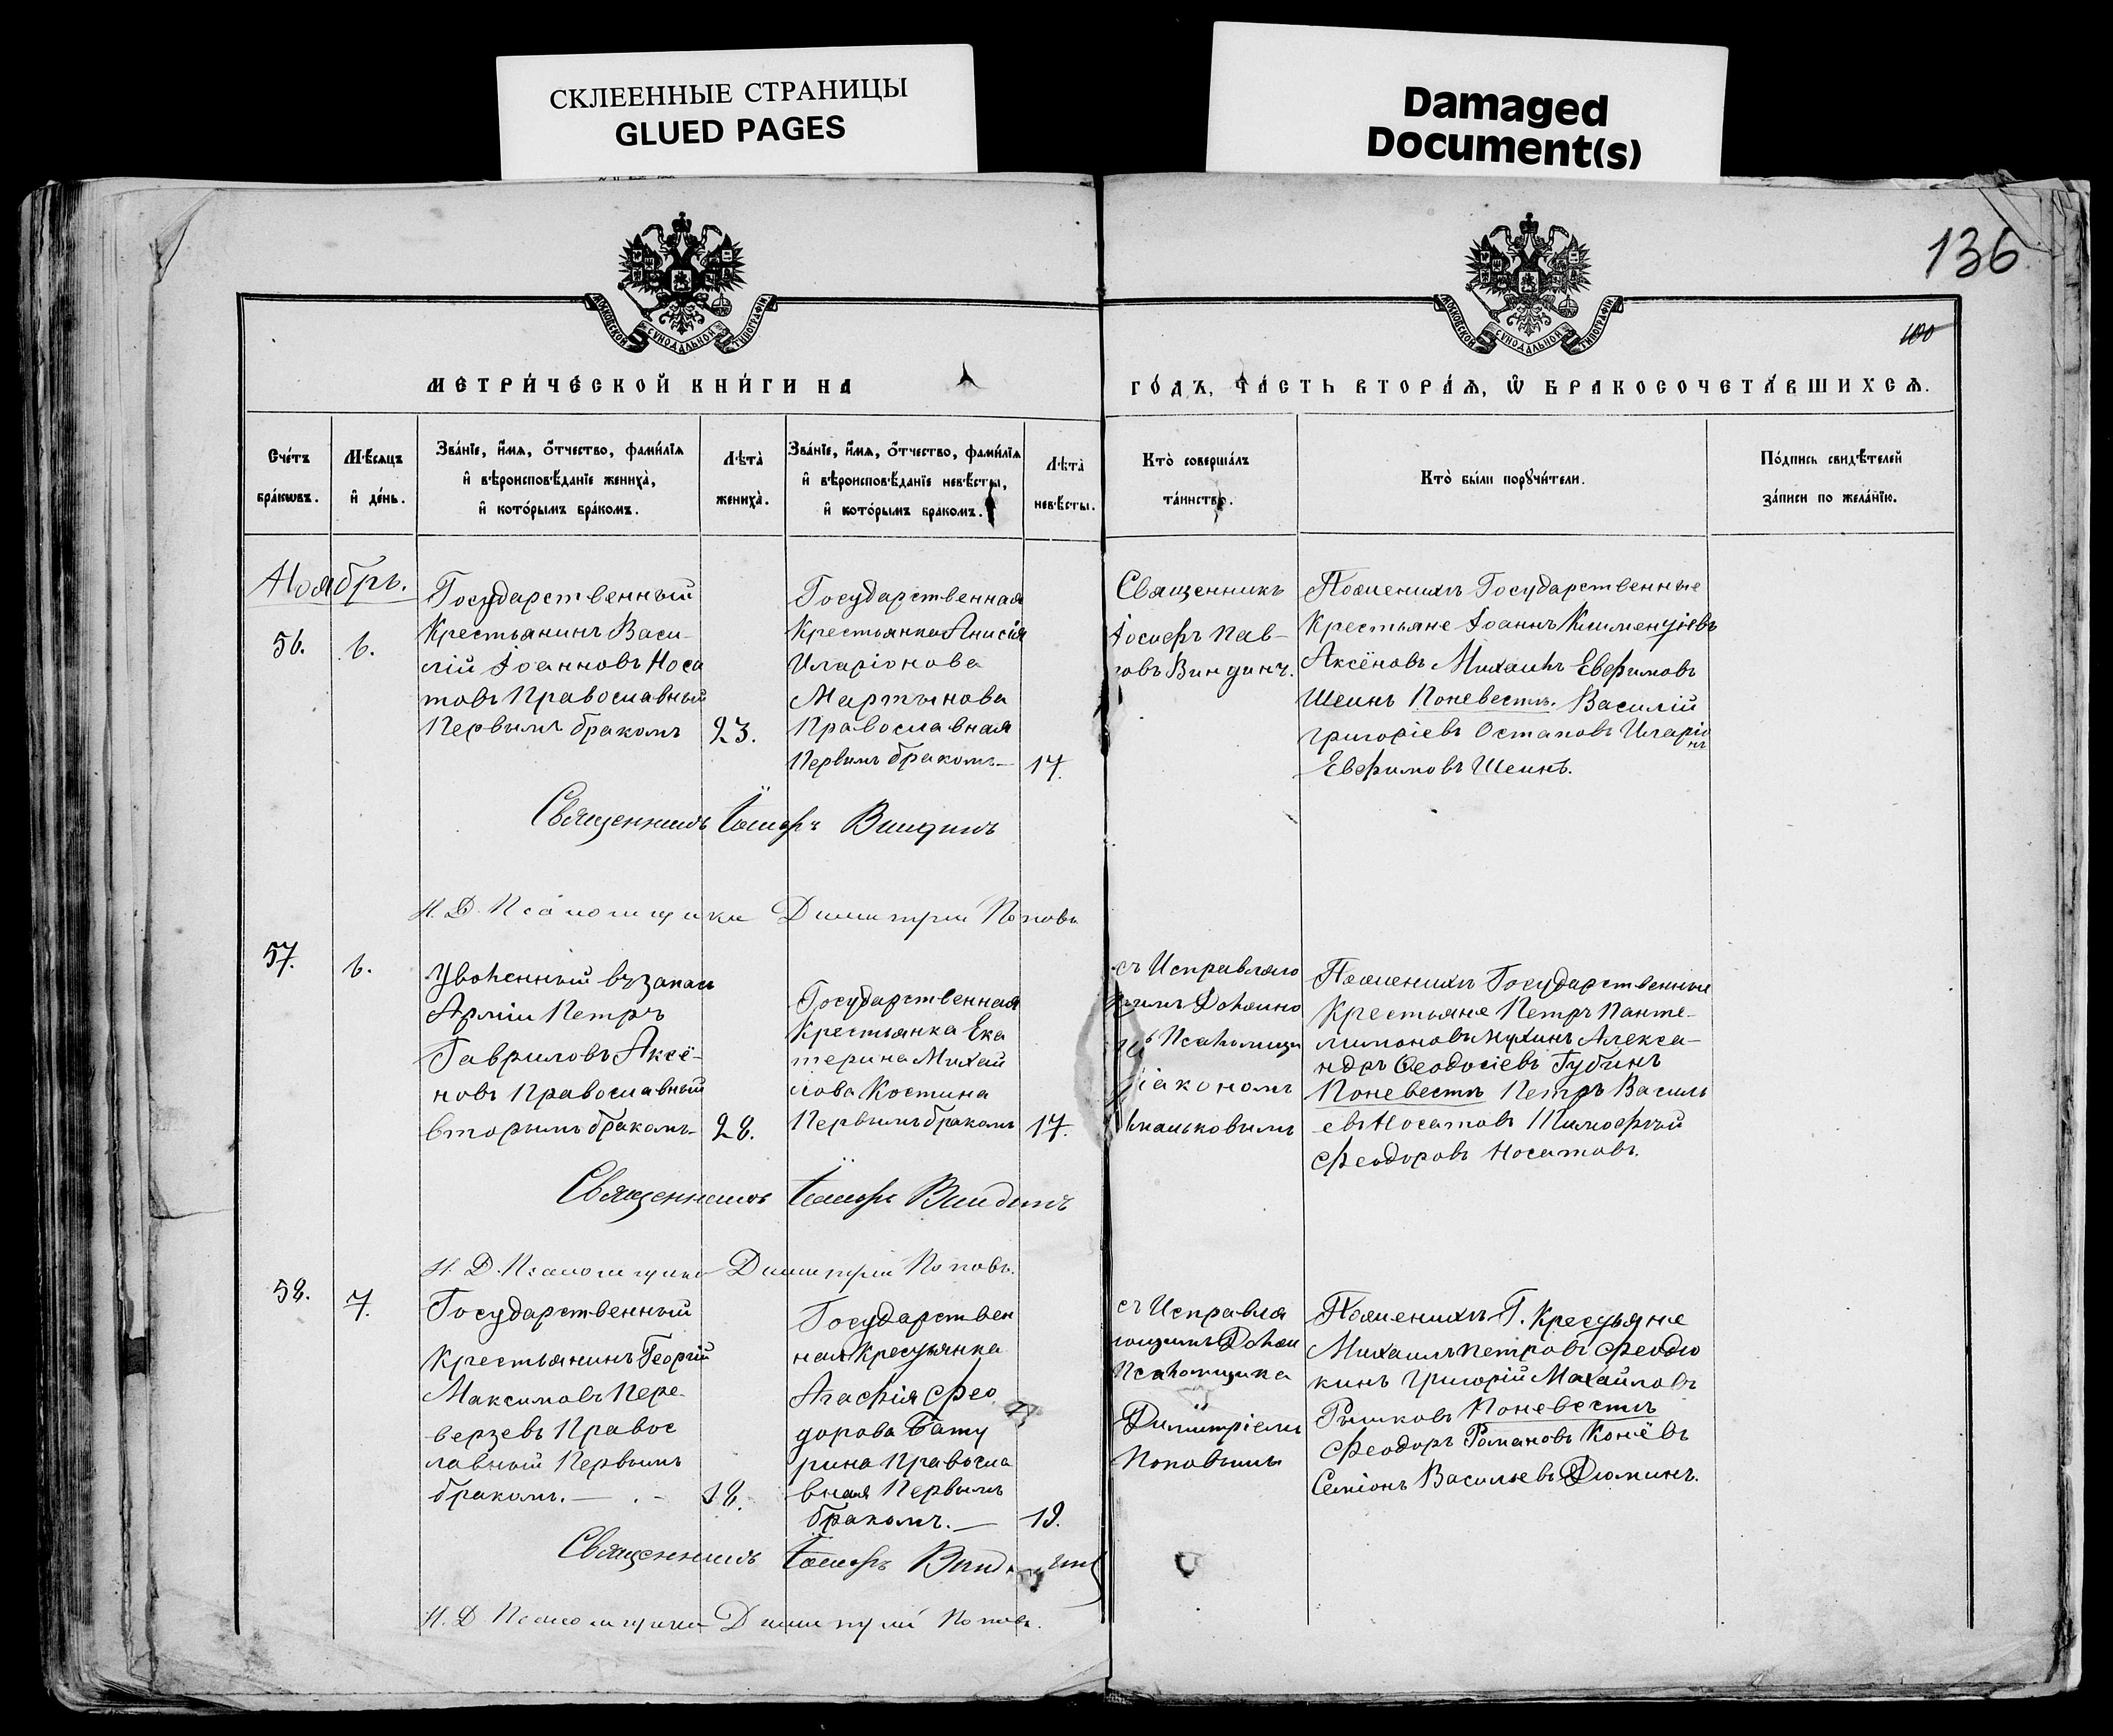 СКЛЕЕННЫЕ СТРАНИЦЫ
GLUED PAGES
Damaged
Document(s)
136
МОСКОВСКОЙ СѴНОДАЛЬНОЙ ТИПОГРАФІИ
МОСКОВСКОЙ СѴНОДАЛЬНОЙ ТИПОГРАФІИ
100
МЕТРИ́ЧЕСКОЙ КНИ́ГИ НА
ГО́ДЪ, ЧА́СТЬ ВТОРА́Ѧ, Ѡ҆ БРАКОСОЧЕТА́ВШИХСѦ.
Сче́тъ
бра́кѡвъ.
Мѣ́сѧцъ
и҆ де́нь.
Зва́нїе, и҆́мѧ, о҆́тчество, фами́лїѧ
и҆ вѣроисповѣ́данїе жениха̀,
и҆ кото́рымъ бра́комъ.
Лѣта̀
жениха̀.
Зва́нїе, и҆́мѧ, о҆́тчество, фами́лїѧ
и҆ вѣроисповѣ́данїе невѣ́сты,
и҆ кото́рымъ бра́комъ.
Лѣта̀
невѣ́сты.
Кто̀ соверша́лъ
та́инство.
Кто̀ бы́ли порꙋчи́тели.
По́дпись свидѣ́телей
за́писи по жела́нїю.
Ноябрь.
56.
6.
Государственный
Крестьянинъ Васи-
лій Іоанновъ Носа
товъ Православный
Первымъ бракомъ
23.
Государственная
Крестьянка Анисія
Иларіонова
Мартынова
Православная
Первымъ бракомъ—
17.
Священникъ
Іосифъ Пав-
ловъ Виндинъ.
Поженихѣ Государственные
Крестьяне Іоаннъ Климентіевъ
Аксёновъ Михаилъ Евфимовъ
Шеинъ Поневестѣ. Василій
Григоріевъ Остаповъ Иларіо
нъ
Евфимовъ Шеинъ.
Священникъ Іосифъ Виндинъ
И. Д. Псаломщика Димитрій Поповъ
57.
6.
Уволенный въ запасъ
Арміи Петръ
Гавриловъ Аксё-
новъ Православный
вторымъ бракомъ
28.
Государственная
Крестьянка Ека
терина Михай
лова Костина
Первымъ бракомъ
17.
съ Исправляю
щимъ Должно
Псаломщи
діакономъ
Поженихѣ Государственные
Крестьяне Петръ Панте-
лимоновъ Мухинъ Алекса-
ндръ Ѳеодосіевъ Губинъ
Поневестѣ Петръ Василь
евъ Носатовъ Тимофѣй
Феодоровъ Носатовъ.
Священникъ Іосифъ Виндинъ
И. Д. Псаломщика Димитрій Поповъ.
58.
7.
Государственный
Крестьянинъ Георгій
Максимовъ Пере-
верзевъ Правос
лавный Первымъ
бракомъ.
18.
Государствен
ная Крестьянка
Агафія Фео
дорова Бату
рина Правосла
вная Первымъ
бракомъ.—
19.
съ Исправля
ющимъ Долж
Псаломщика
Димитріемъ
Поповымъ
Поженихѣ Г. Крестьяне
Михаилъ Петровъ Феодю
кинъ Григорій Михайловъ
Рышковъ Поневестѣ
Феодоръ Романовъ Конёвъ
Семіонъ Васильевъ Дюминъ.
Священникъ Іосифъ Виндинъ
И. Д. Псаломщика Димитрій Поповъ.